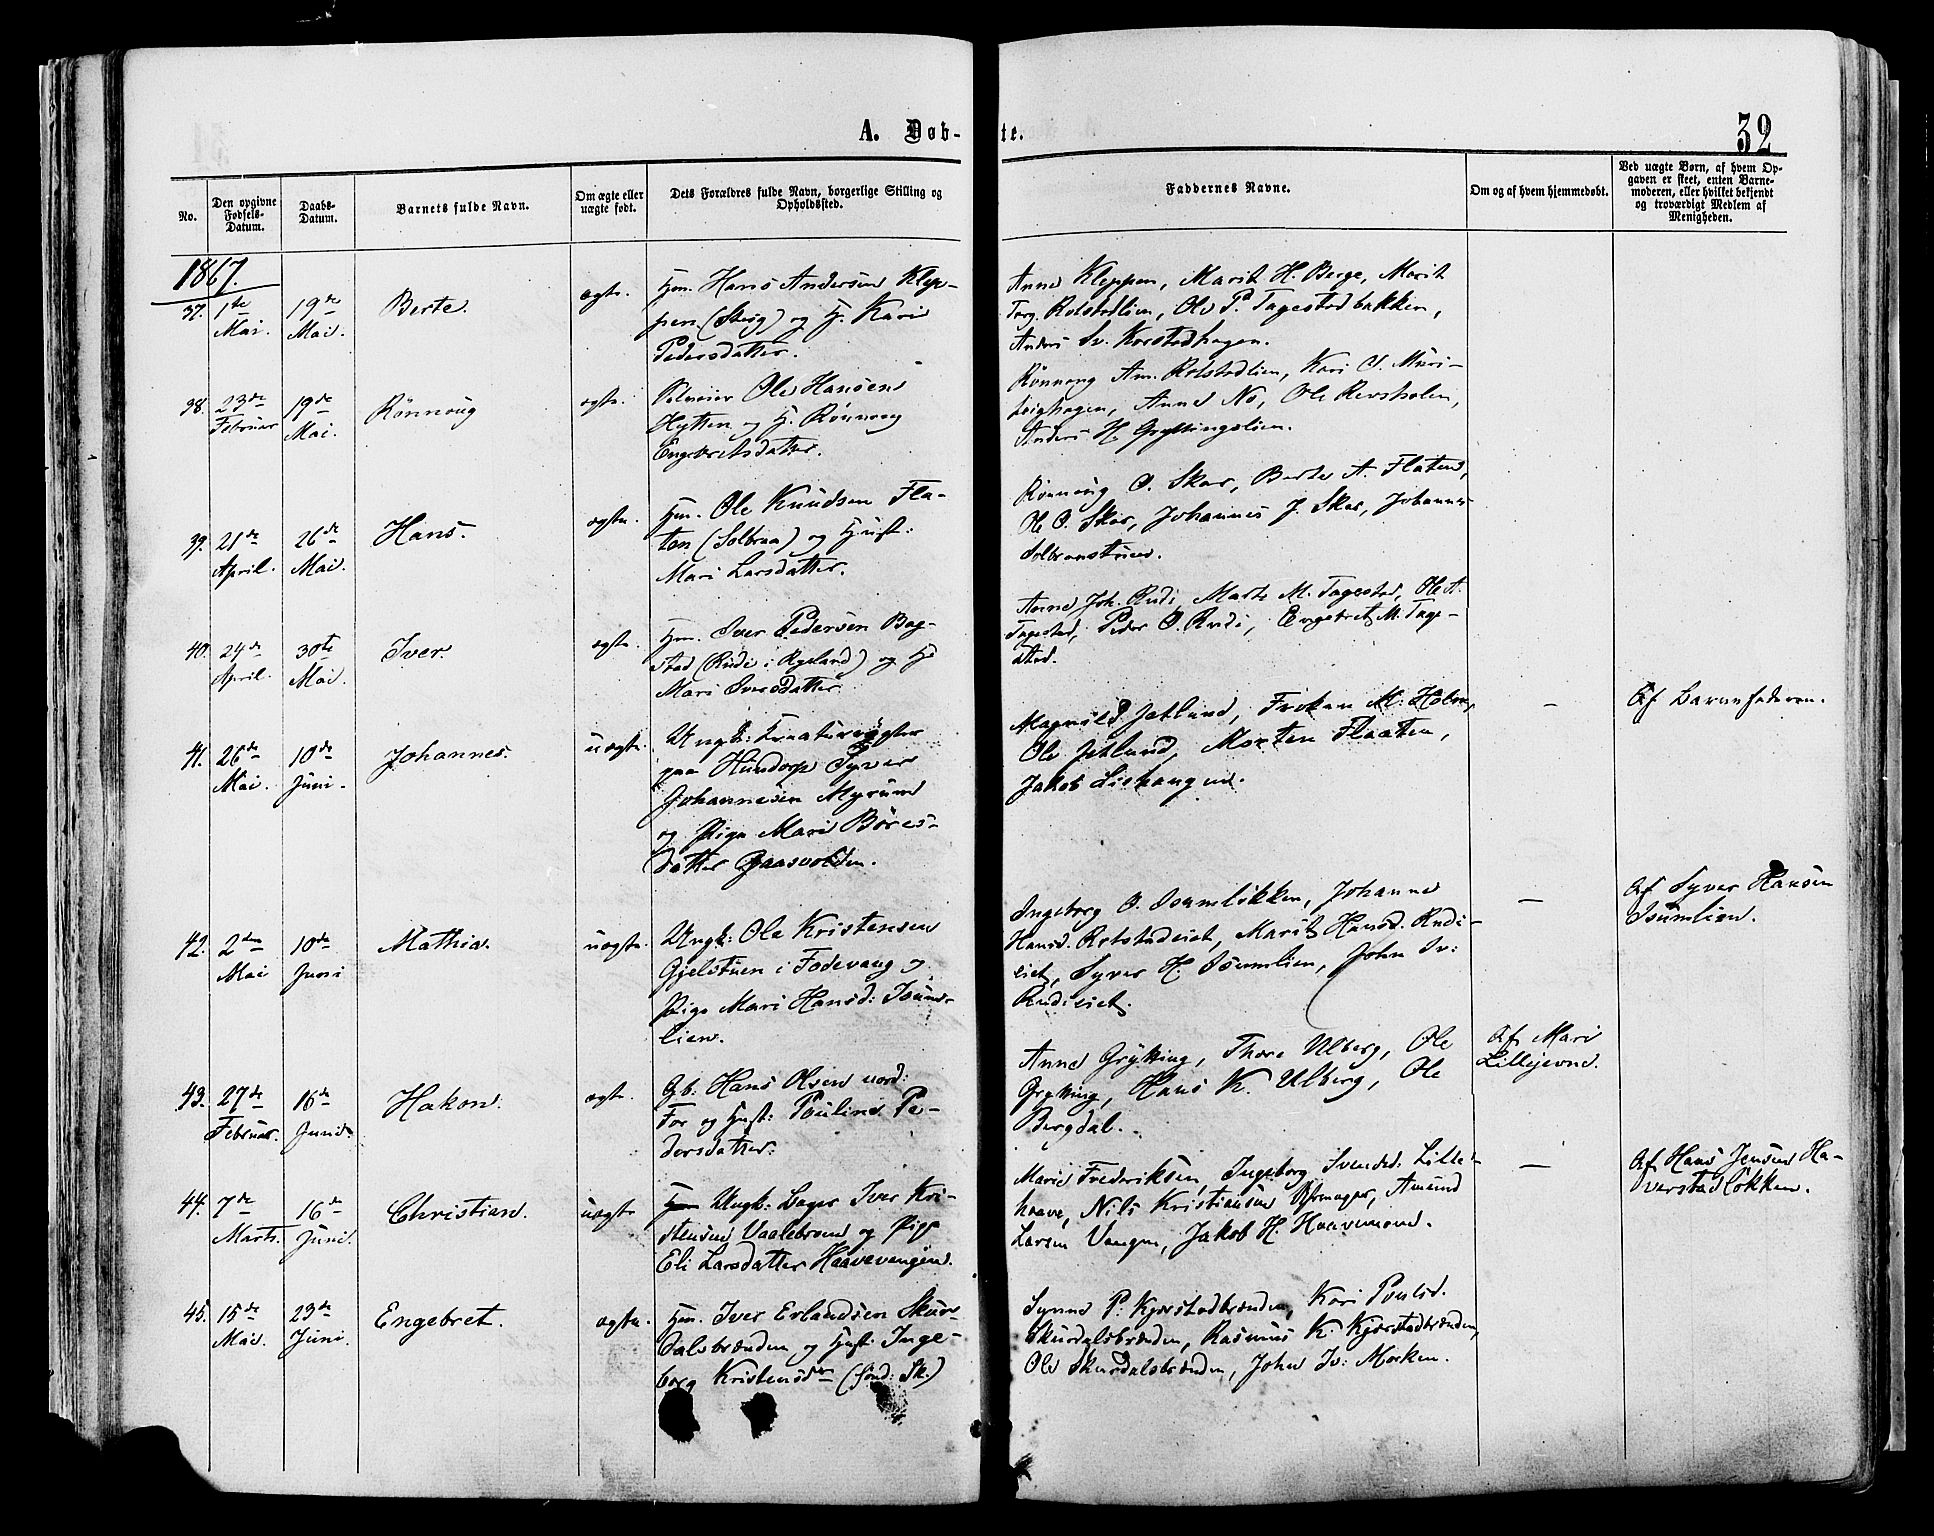 A. Døb-
te.
32
No.
Den opgivne Fødsels-Datum.
Daabs-Datum.
Barnets fulde Navn.
Om ægte eller uægte født.
Dets Forældres fulde Navn, borgerlige Stilling og Opholdssted.
Faddernes Navne.
Om og af hvem hjemmedøbt.
Ved uægte Børn, af hvem Opgaven er skeet, enten Barnemoderen, eller hvilket bekjendt og troværdigt Medlem af Menigheden.
1867.
37. 1ste Mai. 19de Mai. Berte. ægte.
Hm. Hans Andersen Klep-
pen (Steig) og H. Kari
Pedersdatter.
Anne Kleppen, Marit H. Berge, Marit
Torg. Rolstadlien, Ole P. Tagestadbakken,
Anders Sv. Korstadhagen.
38. 23de Februar 19de Mai. Rönnoug ægte.
Ole Hansen
Hytten og H. Rönnoug
Engebretsdatter.
Rönnoug Am. Rolstadlien, Kari O. Muri-
hagen, Anne No, Ole Revsholen,
Anders H. Gryttingslien.
39. 21de April. 26de Mai. Hans. ægte.
Hm. Ole Knudsen Fla-
ten (Solbraa) og Hust:
Mari Larsdatter.
Rönnoug O. Skar, Berte A. Flaten,
Ole O. Skar, Johannes J. Skar, Johannes
Solbraastuen.
40. 24de April. 30te Mai. Iver. ægte.
Hm. Iver Pedersen Bag-
stad (Rudi i Rysland) og H.
Mari Iversdatter.
Anne Joh. Rudi, Marte M. Tagestad, Ole A.
Tagestad, Peder O. Rudi, Engebret M. Tage-
stad.
41. 26de Mai. 10de Juni. Johannes. uægte.
Ungk: Kreaturrögter
paa Hundorp Syver
Johannesen Myrum
og Pige Mari Börres-
datter Gaasvolden.
Magnild Jetlund, Frøken M: Holm,
Ole Jetlund, Morten Flaaten,
Jakob Lishaugen.
— Af Barnefaderen.
42. 2den Mai 10de Juni Mathia. uægte.
Ungk: Ole Kristensen
Gjelstuen i Fodevang og
Pige Mari Hansd: Isum-
lien.
Ingeborg O. Isumlökken, Johanne
Hansd. Rolstadeiet, Marit Hansd. Rudi-
eiet, Syver H. Isumlien, John Iv:
Rudieiet.
— Af Syver Hansen
Isumlien.
43. 27de Februar. 16de Juni. Hakon. ægte.
Gb: Hans Olsen nord:
For og Hust: Pouline Pe-
dersdatter.
Anne Grytting, Thore Ulberg, Ole
Grytting, Hans K. Ulberg, Ole
Bergdal.
Af Mari
Lillejevne.
44. 7de Marts. 16de Juni. Christian. uægte
Hm Ungk: Bager Iver Kri-
stensen Vaalebroen og Pige
Eli Larsdatter Haavevengen.
Marie Frederiksen, Ingeborg Svendsd: Lille-
haave, Nils Kristiansen Uhrmager, Amund
Larsen Vangen, Jakob H. Haavemoen.
— Af Hans Jensen Ha-
verstadlökken.
45. 15de Mai. 23de Juni. Engebret. ægte.
Hm. Iver Erlandsen Skur-
dalsbrænden og Hust: Inge-
borg Kristensdr (fönd: Sk.)
Synne P: Kjorstadbrænden, Kari Poulsd.
Skurdalsbrænden, Rasmus K. Kjorstadbrænden,
Ole Skurdalsbrænden, John Iv: Moeken.